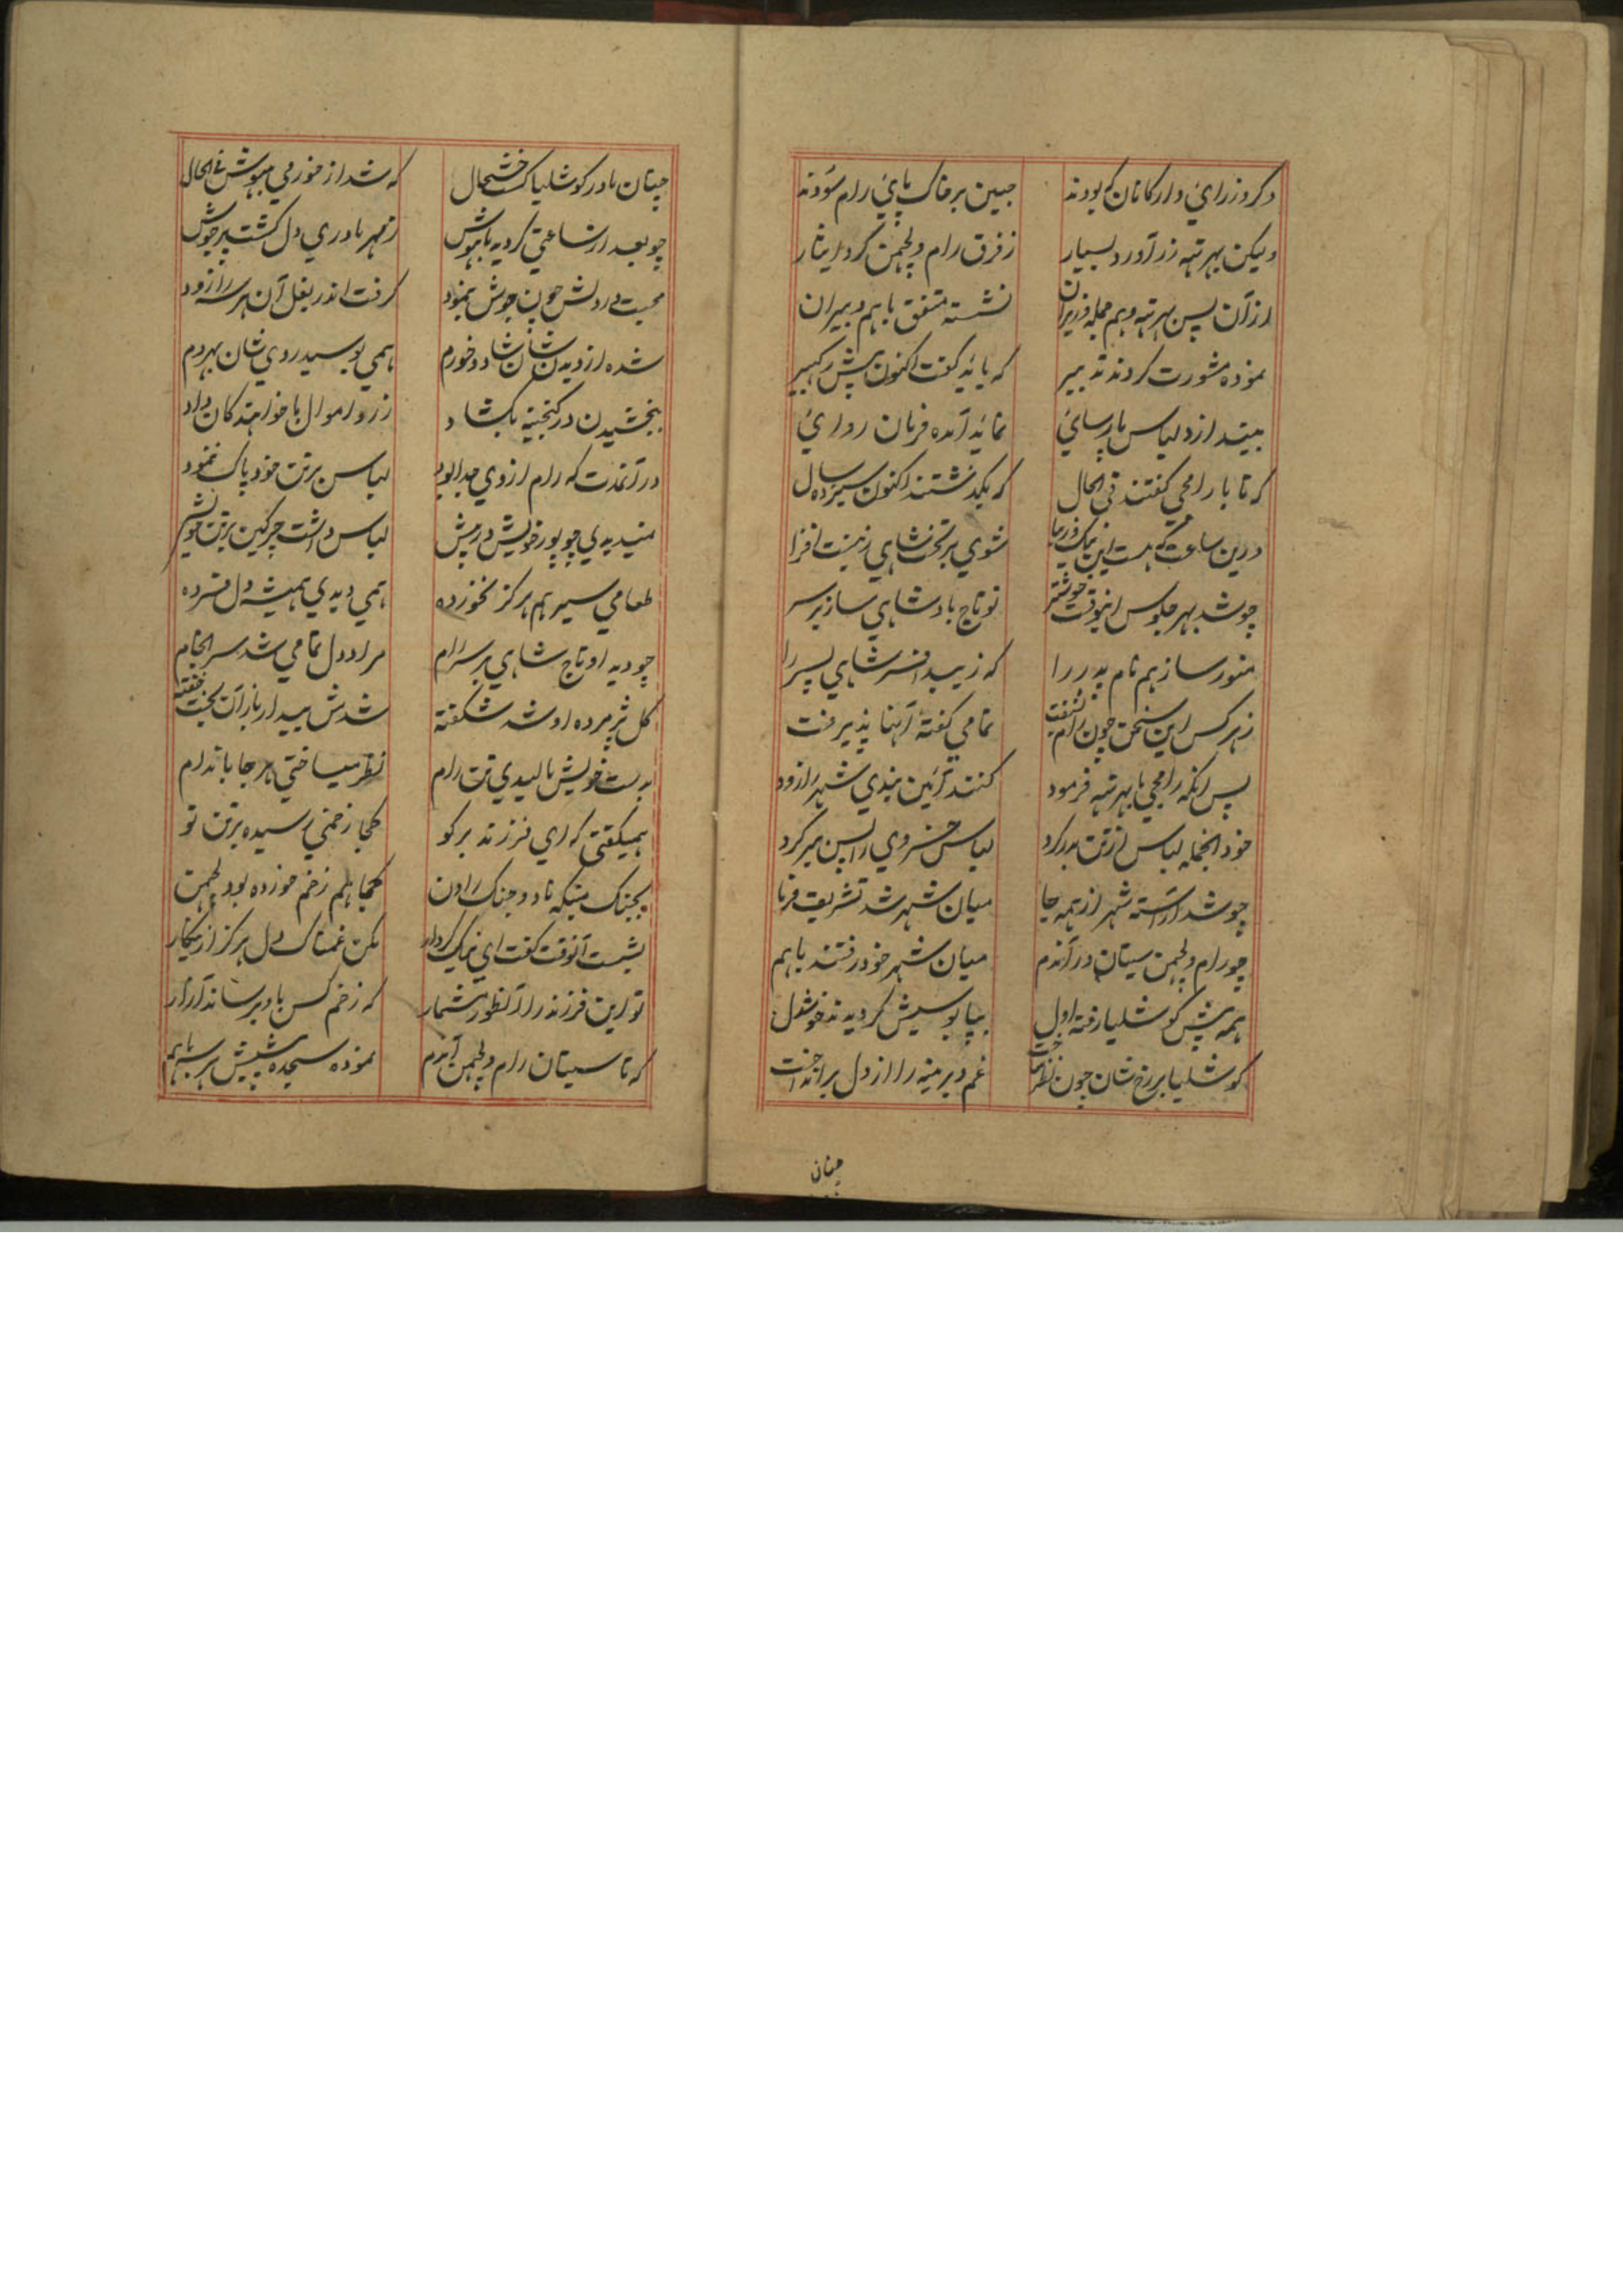 دکر وزرای و ارکانان که بودند جبین بر خاک پای رام سودند
ولیکن بهرتهه زر آورد بسیار ز فرق رام و لچمن کرد ایثار
از آن پس بهرتهه و هم جمله وزیران نشسته متفق باهم دبیران
نموده مشورت کردند تدبیر که باید گفت اکنون پیش
لباس پارسای نماید آمده فرمان روای
که تا با رامجی گفتند فی الحال که بگذشتند اکنون سیزده سال
درین ساعت که هست این نیک شوی بر تخت شاهی زینت افزا
چو شد بهر جلوس اینوقت خوشتر تو تاج بادشاهی ساز بر سر
منور ساز هم نام پدر را که زیبد افسر شاهی پسر را
ز هر کس این سخن چون رام بشنفت تمامی گفته آنها پذیرفت
پس انکه رامجی با بهرتهه فرمود کنند آئین بندی شهر را زود
خود انجمله لباس از تن بدر کرد لباس خسروی را پس ببر کرد
چو شد آراسته شهر از همه جا میان شهر شد تشریف فرما
چو رام و لچمن سیتان در آندم میان شهر خود رفتند باهم
همه پیش کوشلیا رفته اول بپا بوسیش کردیدند خوشدل
کوشلیا بر رخ شان چون نظر ساخت غم دیرینه را از دل برانداخت
چنان
چنان مادر کوشلیا کشت خوشحال که شد از خورمی بیهوش فی الحال
چو بعد از ساعتی کردید باهوش ز مهر مادری دل کشت پر جوش
محبت در دلش چون جوش بنمود کرفت اندر بغل آن هر سه را زود
شده از دیدن شان شاد و خورم همی بوسید روی شان بهر دم
ببخشیدن در کنجینه بکشاد زر و اموال با خواهندکان داد
در آنمدت که رام از وی جدا بود لباس بر تن خود پاک ننمود
ندیدی چو پور خویش در پیش لباس داشت چرکین بر تن خویش
طعامی سیر هم هرکز نخورده همی دیدی همیشه دل فسرده
چو دید او تاج شاهی بر سر رام مراد دل تمامی شد سر انجام
کل پژمرده او شد شکفته شدش بیدار باز آن بخت خفته
بدست خویش مالیدی تن رام نظر میساختی هر جا باندام
همیگفتی که ای فرزند برکو کجا زخمی رسیده بر تن تو
بجنک میکهه ناد و جنک راون کجا هم زخم خورده بود لچمن
بشست آنوقت گفت ای نیک کردار مکن غمناک دل هرکز ازینکار
تو این فرزند را آنطور مشمار که زخم کس باو برساند آزار
که تا سیتان رام و لچمن آندم نموده سجده پیشش هر سه باهم